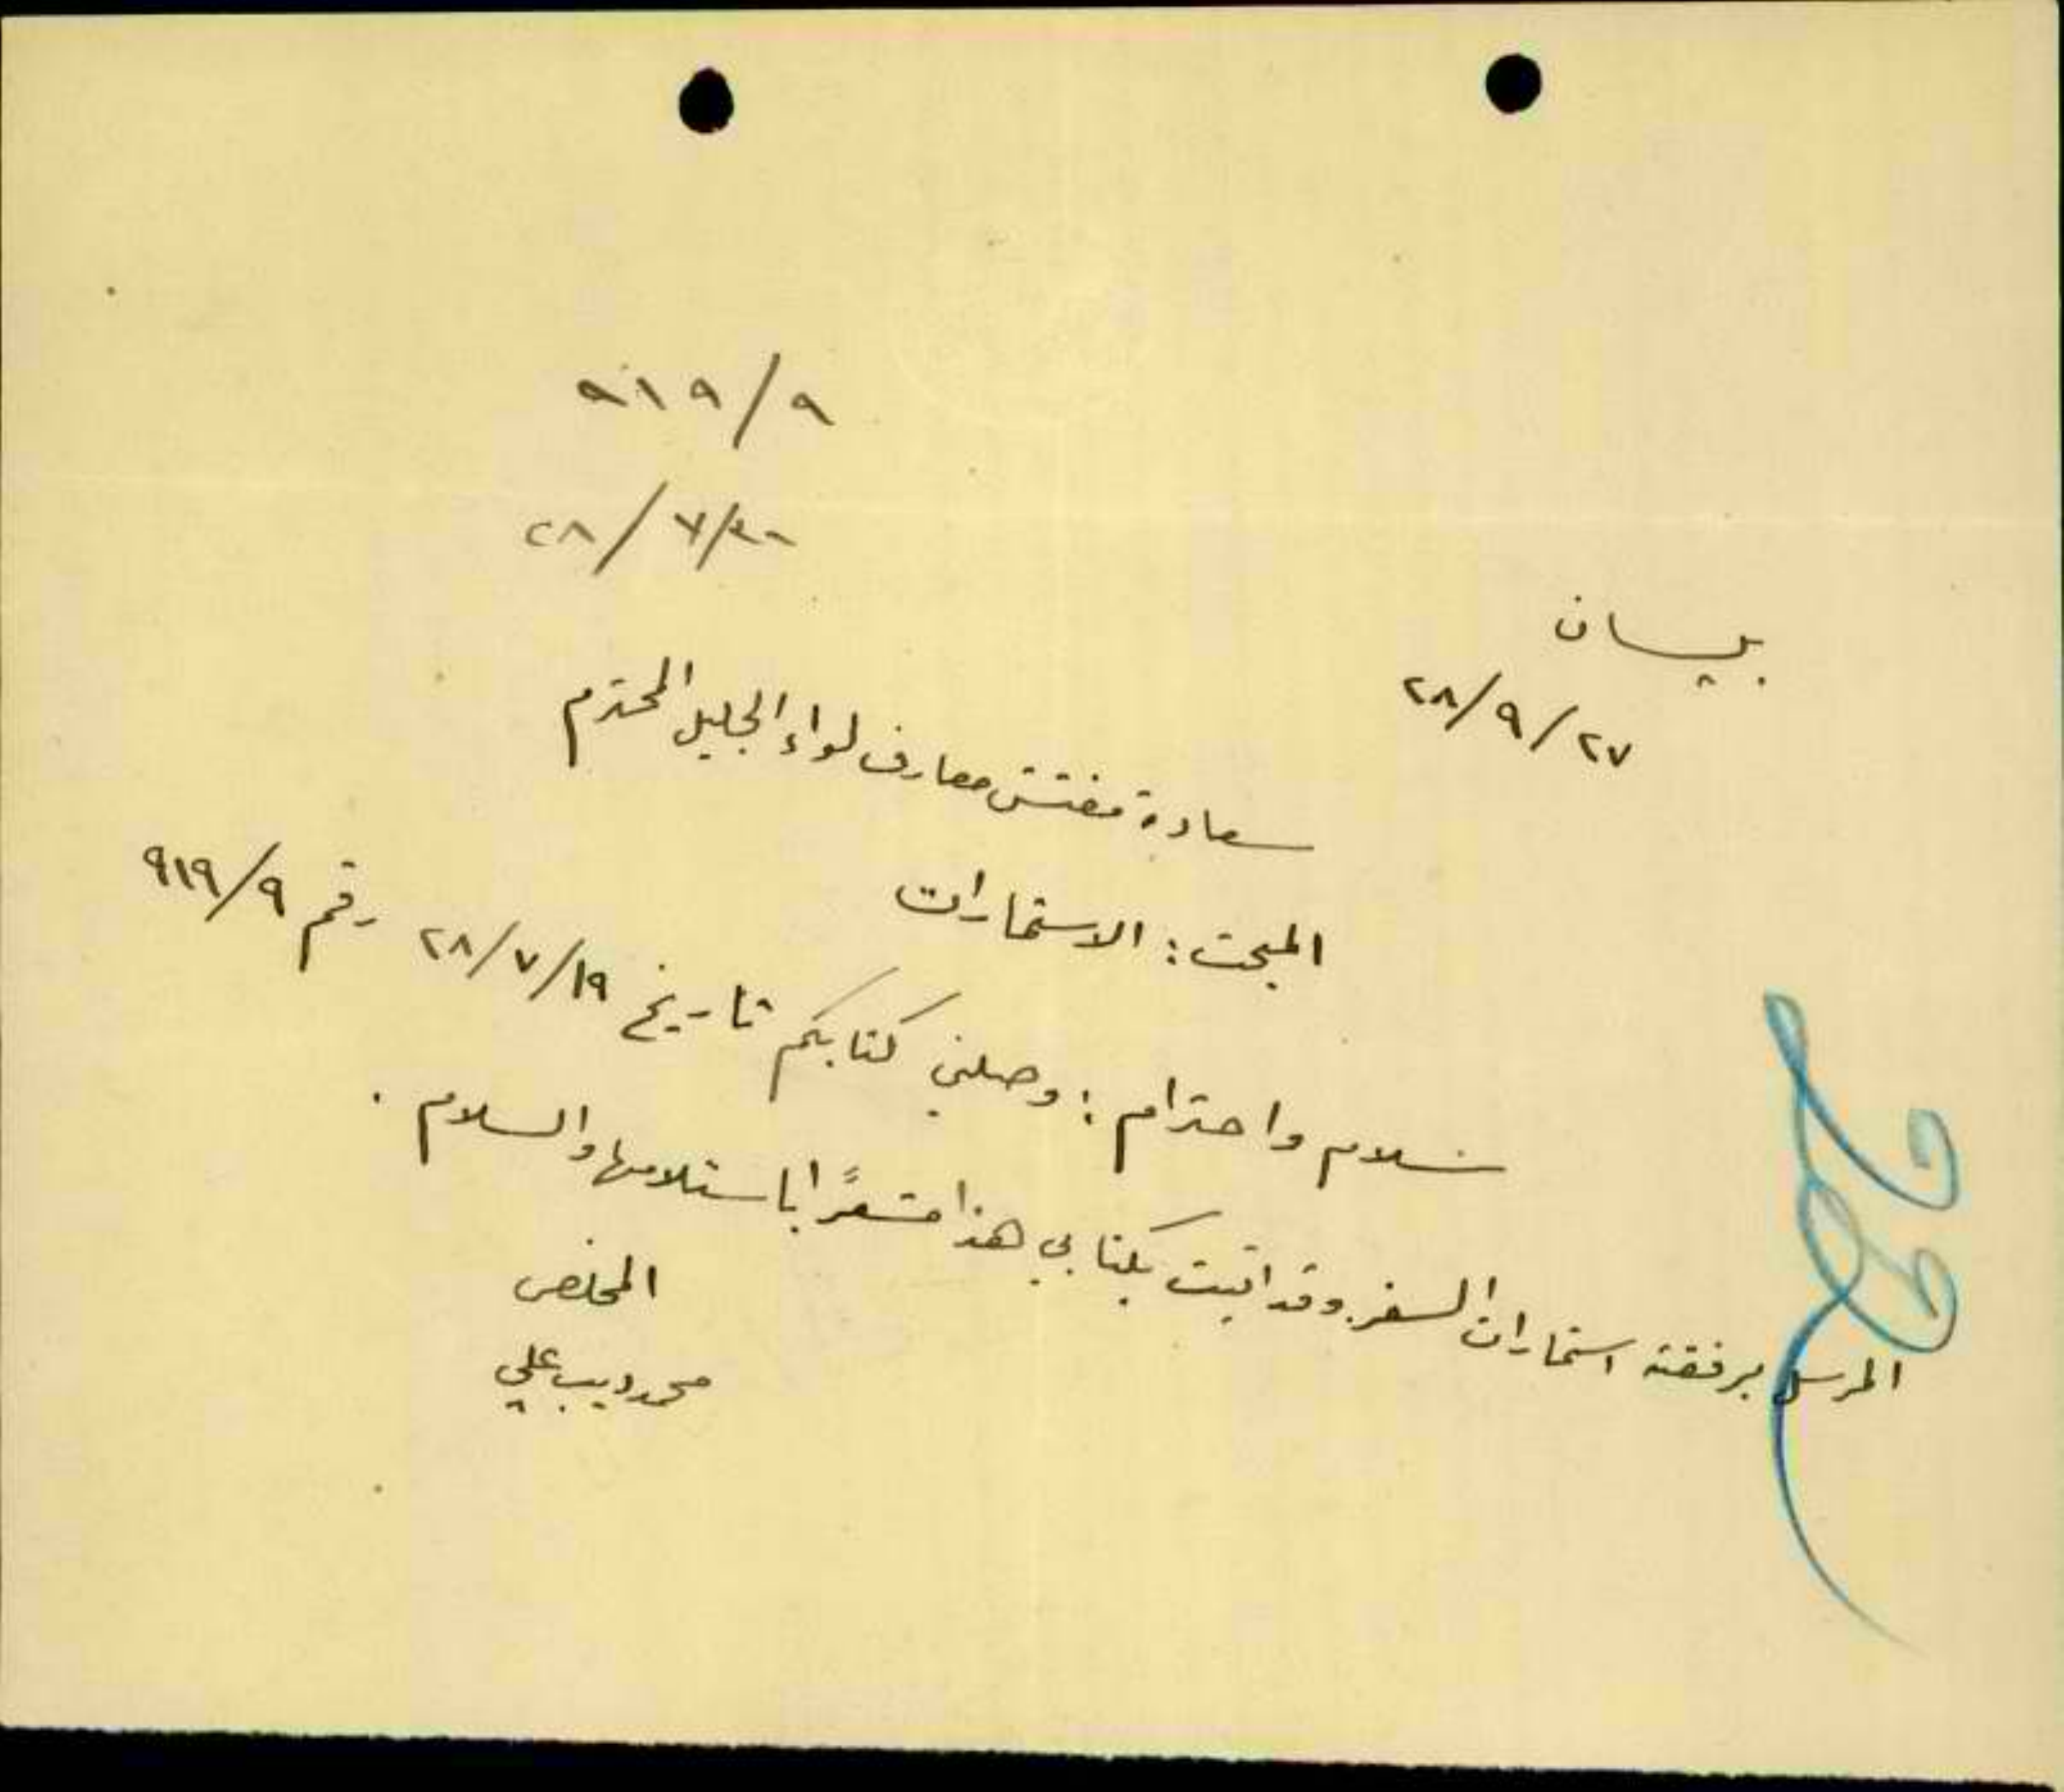 ٩/٩١٩
بيسان
٢٧/٩/٢٨
سعادة مفتش معارف لواء الجليل المحترم
المبحث: الاستمارات
سلام واحترام: وصلني كتابكم تاريخ ١٩/٧/٢٨ رقم ٩/٩١٩
المرسل برفقته استمارات السفر. وقد اتيت بكتابي هذا مشعرًا باستلامها والسلام.
المخلص
محمد ديب علي